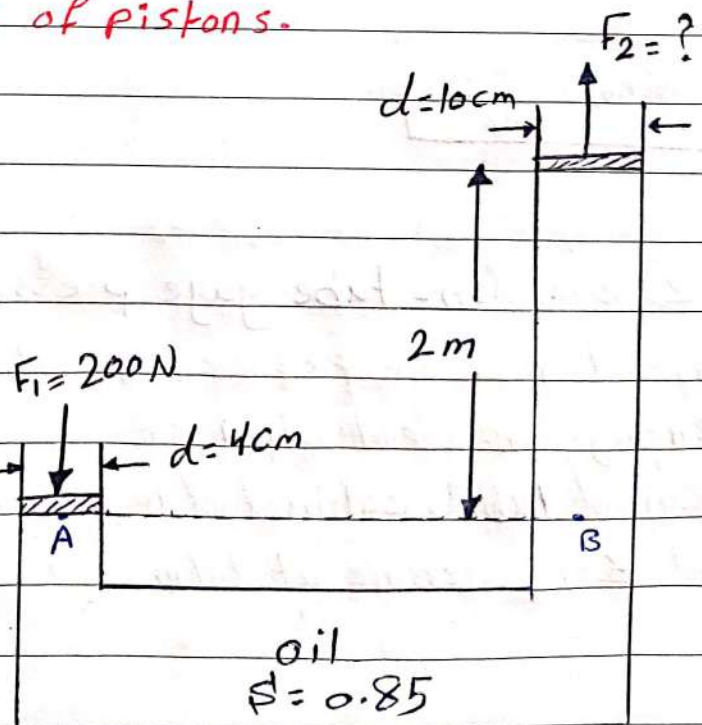 of pistons.
F2 = ?
d=10cm
2m
F1 = 200N
d=4cm
A
B
oil
S = 0.85